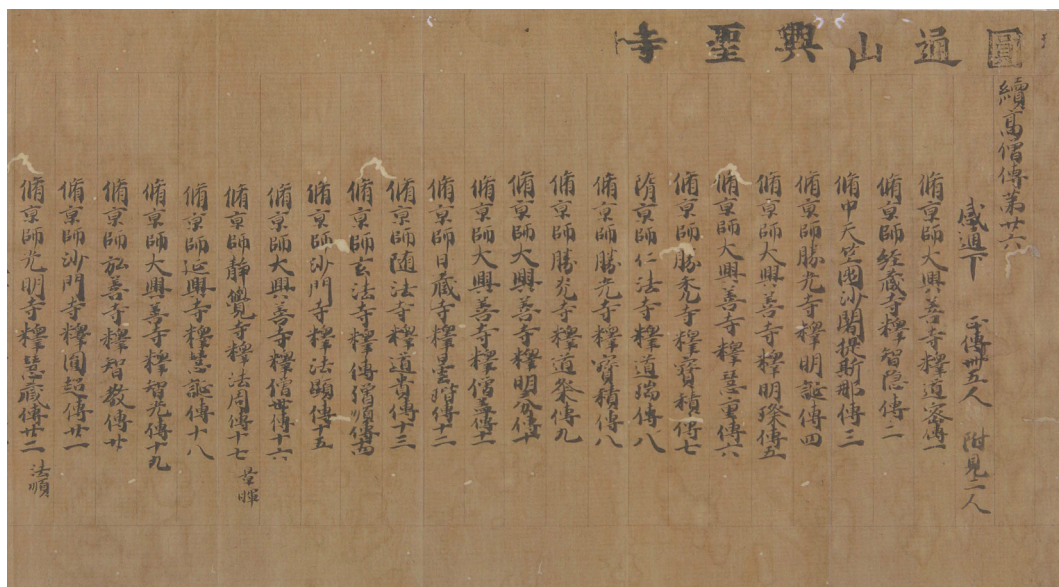 圓通山興聖寺
續高僧傳第廿六
感通下 正傳卌五人 附見二人
脩京師大興善寺釋道密傳一
脩京師經藏寺釋智隱傳二
脩中天竺国沙闍提斯那傳三
脩京師勝光寺釋明誕傳四
脩京師大興善寺釋明璨傳五
脩京師大興善寺釋慧重傳六
脩京師勝光寺釋寶積傳七
隋京師仁法寺釋道端傳八
脩京師勝光寺釋寶積傳八
脩京師勝光寺釋道粲傳九
脩京師大興善寺釋明芬傳十
脩京師大興善寺釋僧蓋傳十一
脩京師日嚴寺釋曇瑎傳十二
脩京師隨法寺釋道貴傳十三
脩京師玄法寺釋僧順傳十四
脩京師沙門寺釋法顯傳十五
脩京師大興善寺釋僧世傳十六
脩京師靜覺寺釋法周傳十七 景暉
脩京師延興寺釋慧誕傳十八
脩京師大興善寺釋智光傳十九
脩京師弘善寺釋智教傳廿
脩京師沙門寺釋圓超傳廿一
脩京師光明寺釋慧藏傳廿二 法順